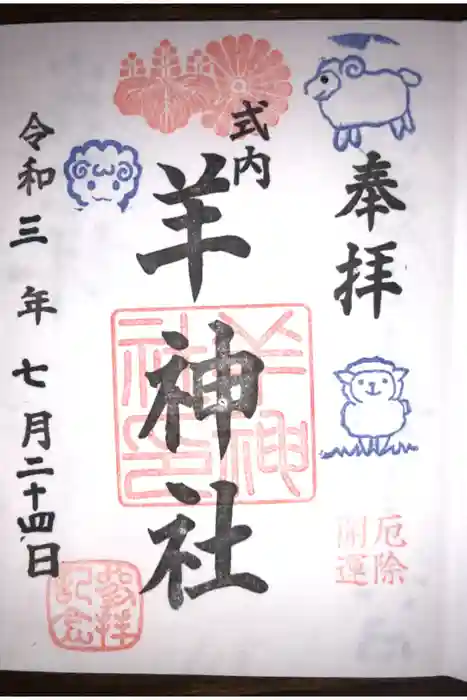 奉拝
厄除
開運
式内
羊神社
羊神
社印
令和三年七月二十四日
参拝
記念